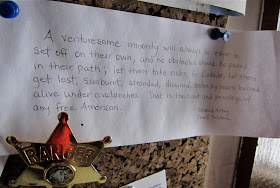 A venturesome minority will always be eager to
set off on their own, and no obstacles should be placed
in their path; let them take risks, for Godsake, let them
get lost, sunburnt, stranded, drowned, eaten by bears, buried
alive under avalanches. That is the right and privilege of
any free American.
RANGER